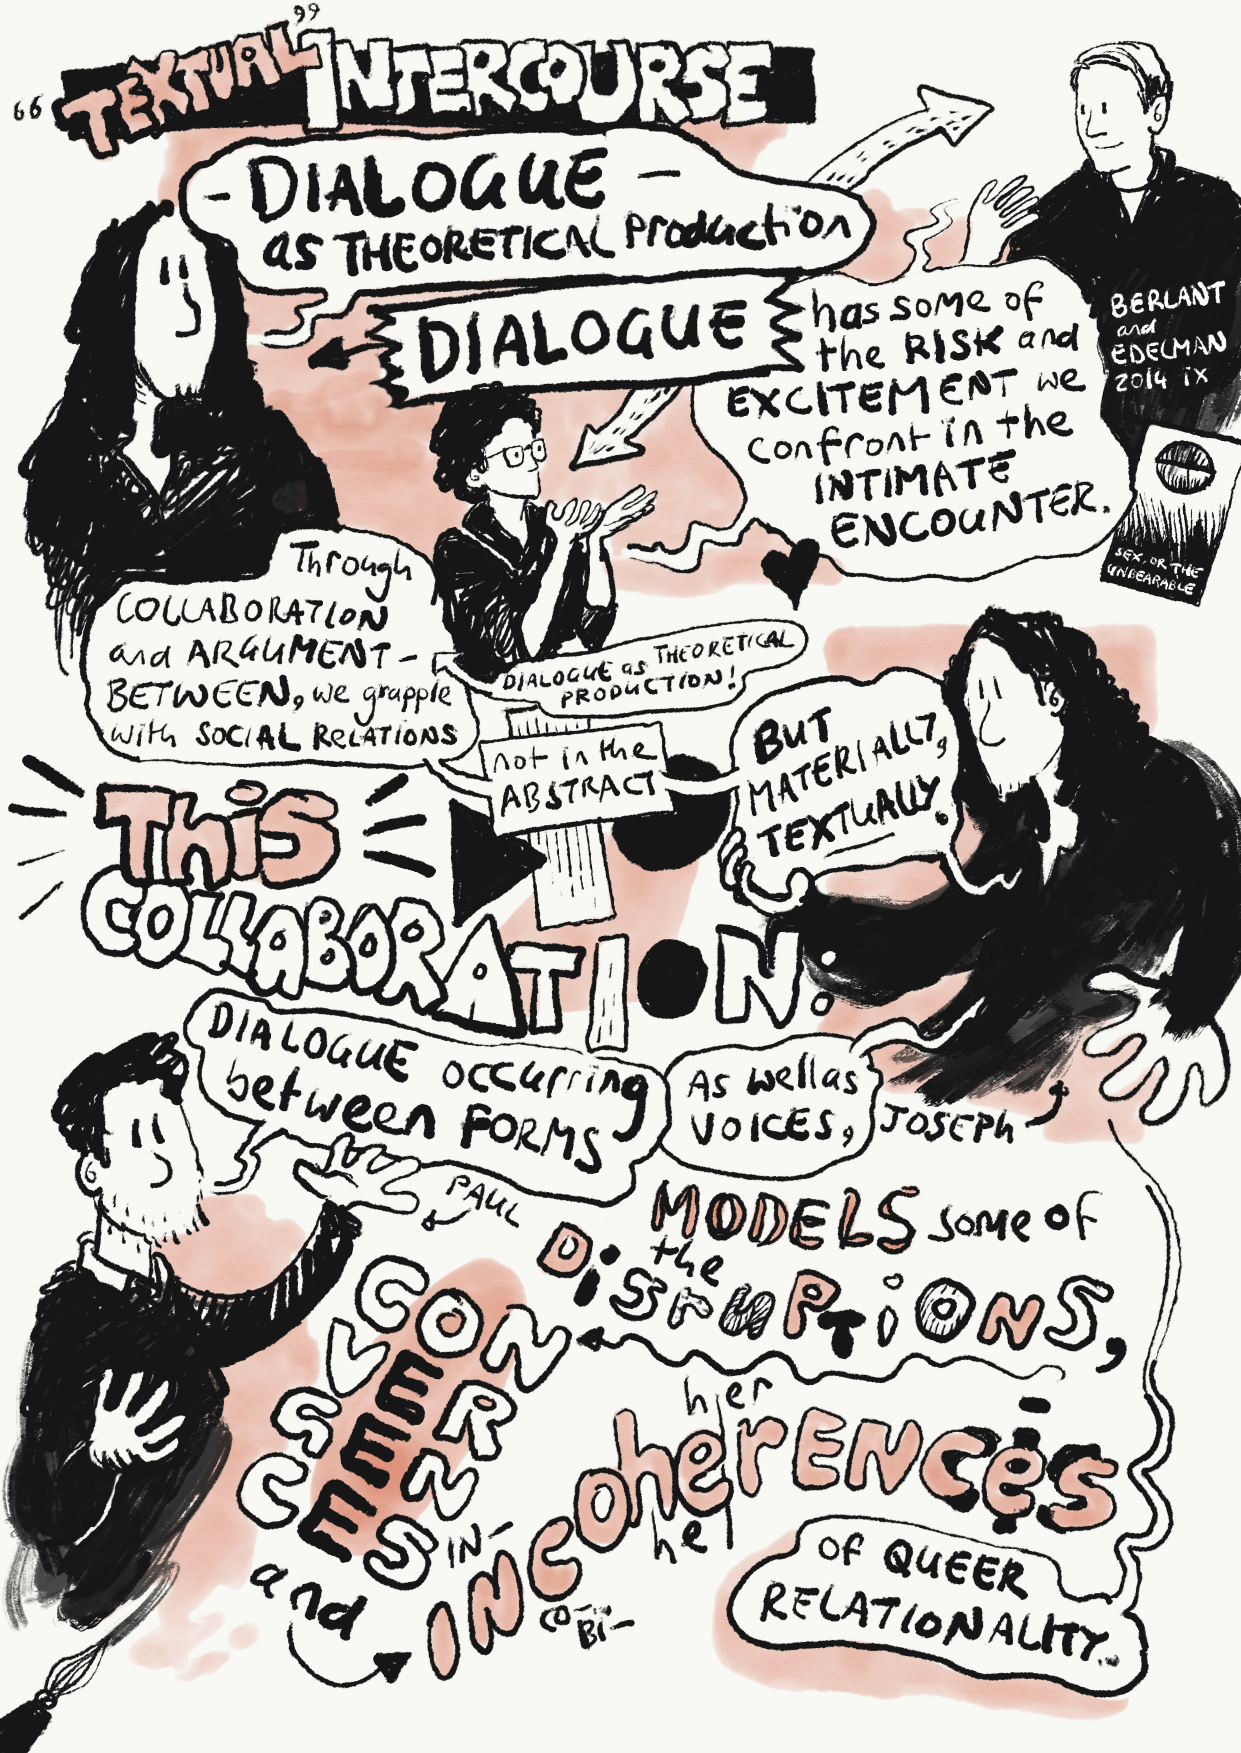 “TEXTUAL” INTERCOURSE
- DIALOGUE -
as THEORETICAL production
DIALOGUE
has some of
the RISK and
EXCITEMENT we
confront in the
INTIMATE
ENCOUNTER.
BERLANT
and
EDELMAN
2014 ix
SEX, OR THE
UNBEARABLE
Through
COLLABORATION
and ARGUMENT -
BETWEEN, we grapple
with SOCIAL RELATIONS
DIALOGUE as THEORETICAL
PRODUCTION!
not in the
ABSTRACT
BUT
MATERIALLY,
TEXTUALLY.
This
COLLABORATION.
DIALOGUE occurring
between FORMS
As well as
VOICES,
JOSEPH
PAUL
MODELS some of
the
DiSruPTiONS,
CON
VER
SEN
CES
and
IN-
CO-
BI-
her
INCOherENCES
he
OF QUEER
RELATIONALITY.